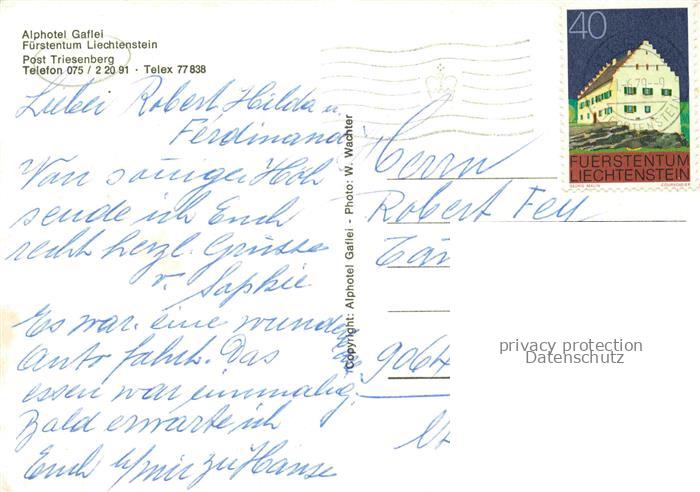 Alphotel Gaflei
Fürstentum Liechtenstein
Post Triesenberg
Telefon 075 / 2 20 91 · Telex 77 838
Lieber Robert Hilda u.
Ferdinand!
Von soniger Höh
sende ich Euch
recht herzl. Grüsse
v. Sophie
Es war eine wunder
Auto fahrt. Das
essen war einmalig.
Bald erwarte ich
Euch b/mir zu Hause
Copyright: Alphotel Gaflei - Photo: W. Wachter
40
FUERSTENTUM
LIECHTENSTEIN
GEORG MALIN COURVOISIER
Herrn
Robert Fey
9064
privacy protection
Datenschutz